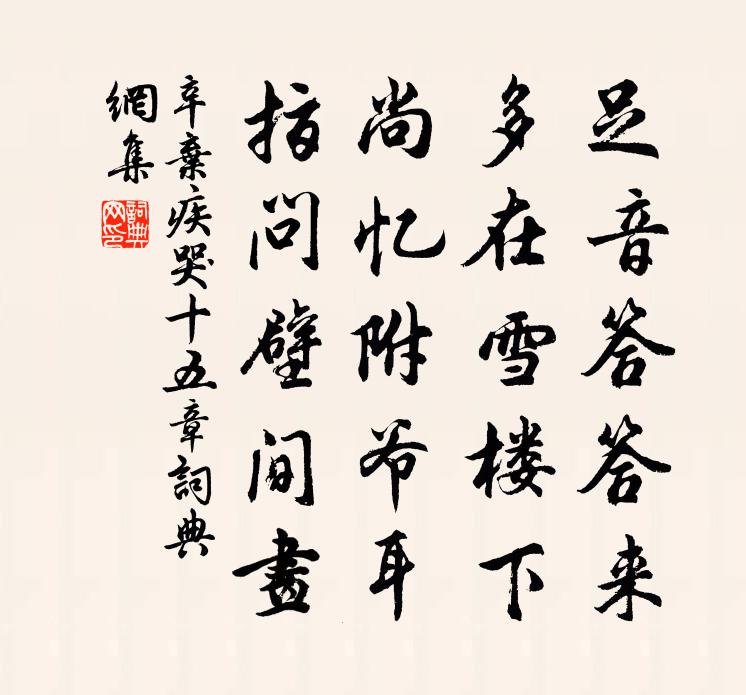 足音答答来
多在雪楼下
尚忆附爷耳
指问壁间畫
辛棄疾哭十五章詞典
網集
詞典網印